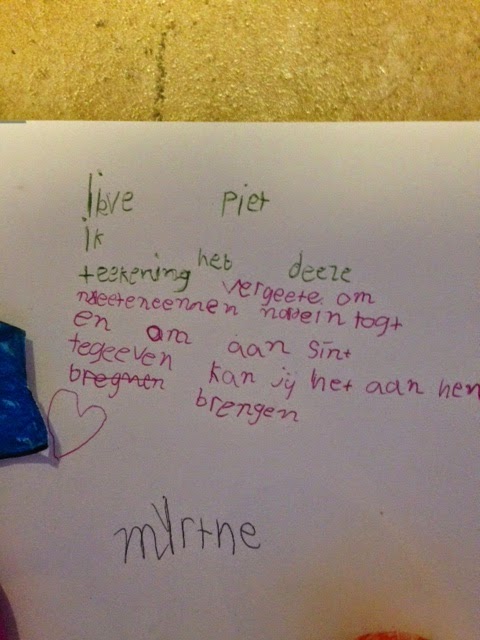 lieve piet
ik
teekening heb deeze
vergeete om
meeteneemen naar intogt
en om aan sint
tegeeven
bregnen kan jij het aan hem
brengen
myrthe